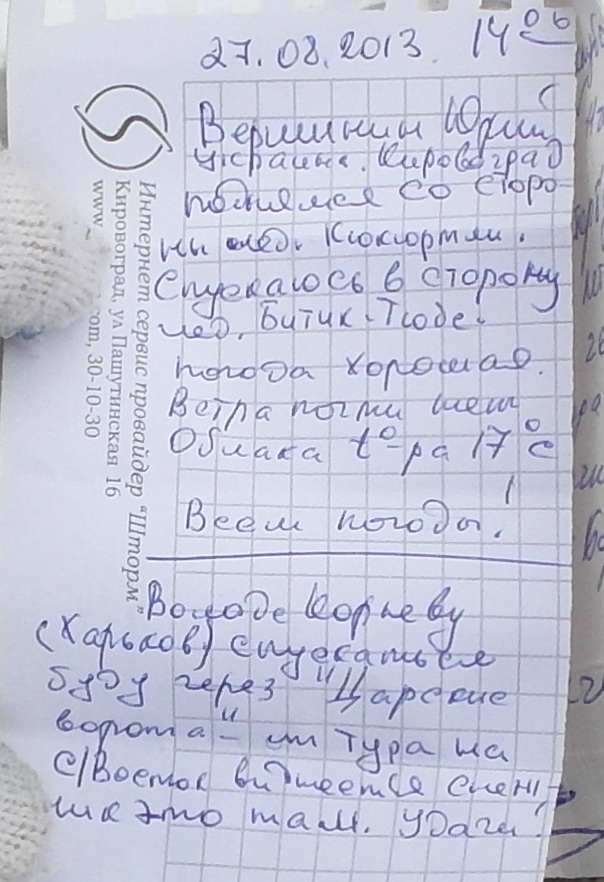 27.08.2013. 14 06
Вершинин Юрий,
Украина. Кировоград
поднялся со сторо-
ны лед. Кюкюртли.
Спускаюсь в сторону
лед. Битик-Тюбе.
погода хорошая.
Ветра почти нет
Облака t°-ра 17°С
Всем погоды!
Володе Корневу
(Харьков) спускаться
буду через "Царские
ворота" - от тура на
С/Восток виднеется снеж-
ик это там. Удачи!
Интернет сервис провайдер "Шторм"
Кировоград, ул Пашутинская 16
www. com, 30-10-30